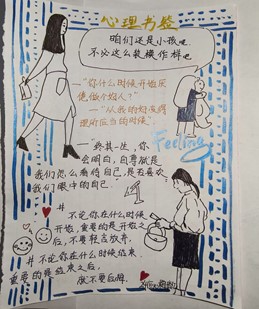 心理书签
咱们还是小孩吧
不必这么装模作样吧
—"你什么时候开始厌
倦做个好人?"
—"从我的好被得
理所应当的时候"
Feeling
—终其一生，你
会明白，自尊就是
我们怎么看待自己，是否喜欢
我们眼中的自己
# 不论你在什么时候
开始，重要的是开始之
后，不要轻言放弃，
# 不论你在什么时候结束
重要的是结束之后，
就不要后悔